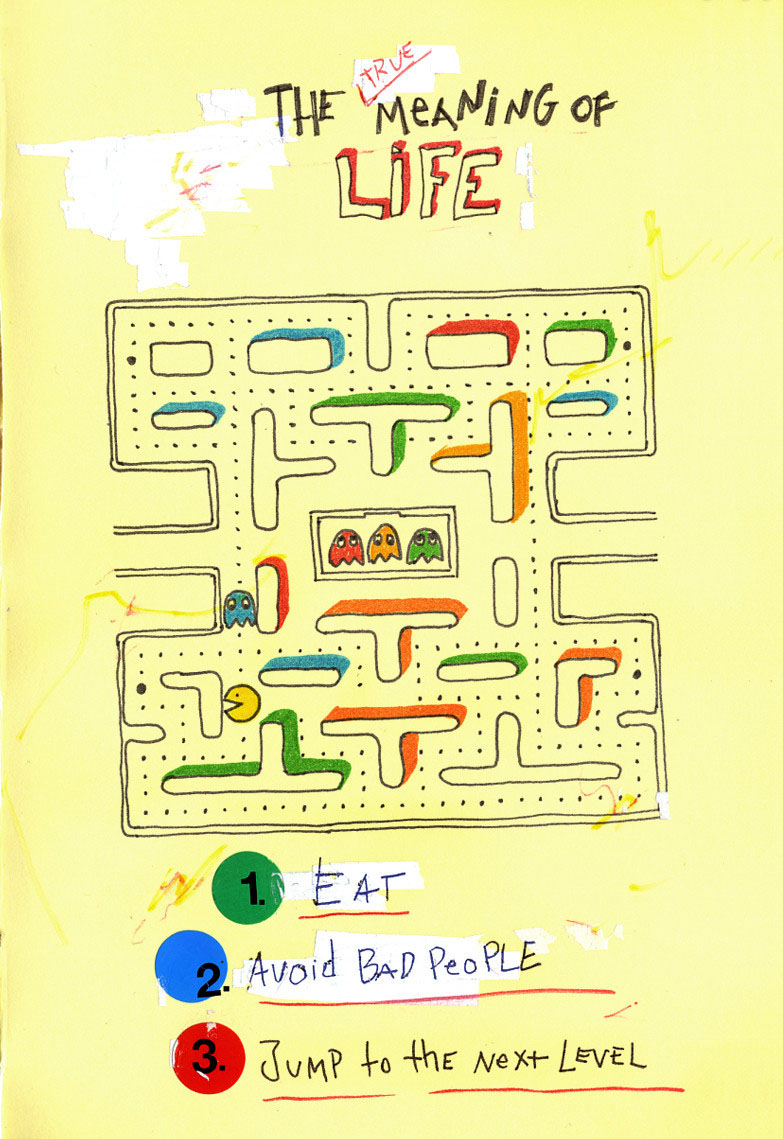 TRUE
THE MEANING OF
LIFE
1. EAT
2. AVOID BAD PEOPLE
3. JUMP to the NEXT LEVEL